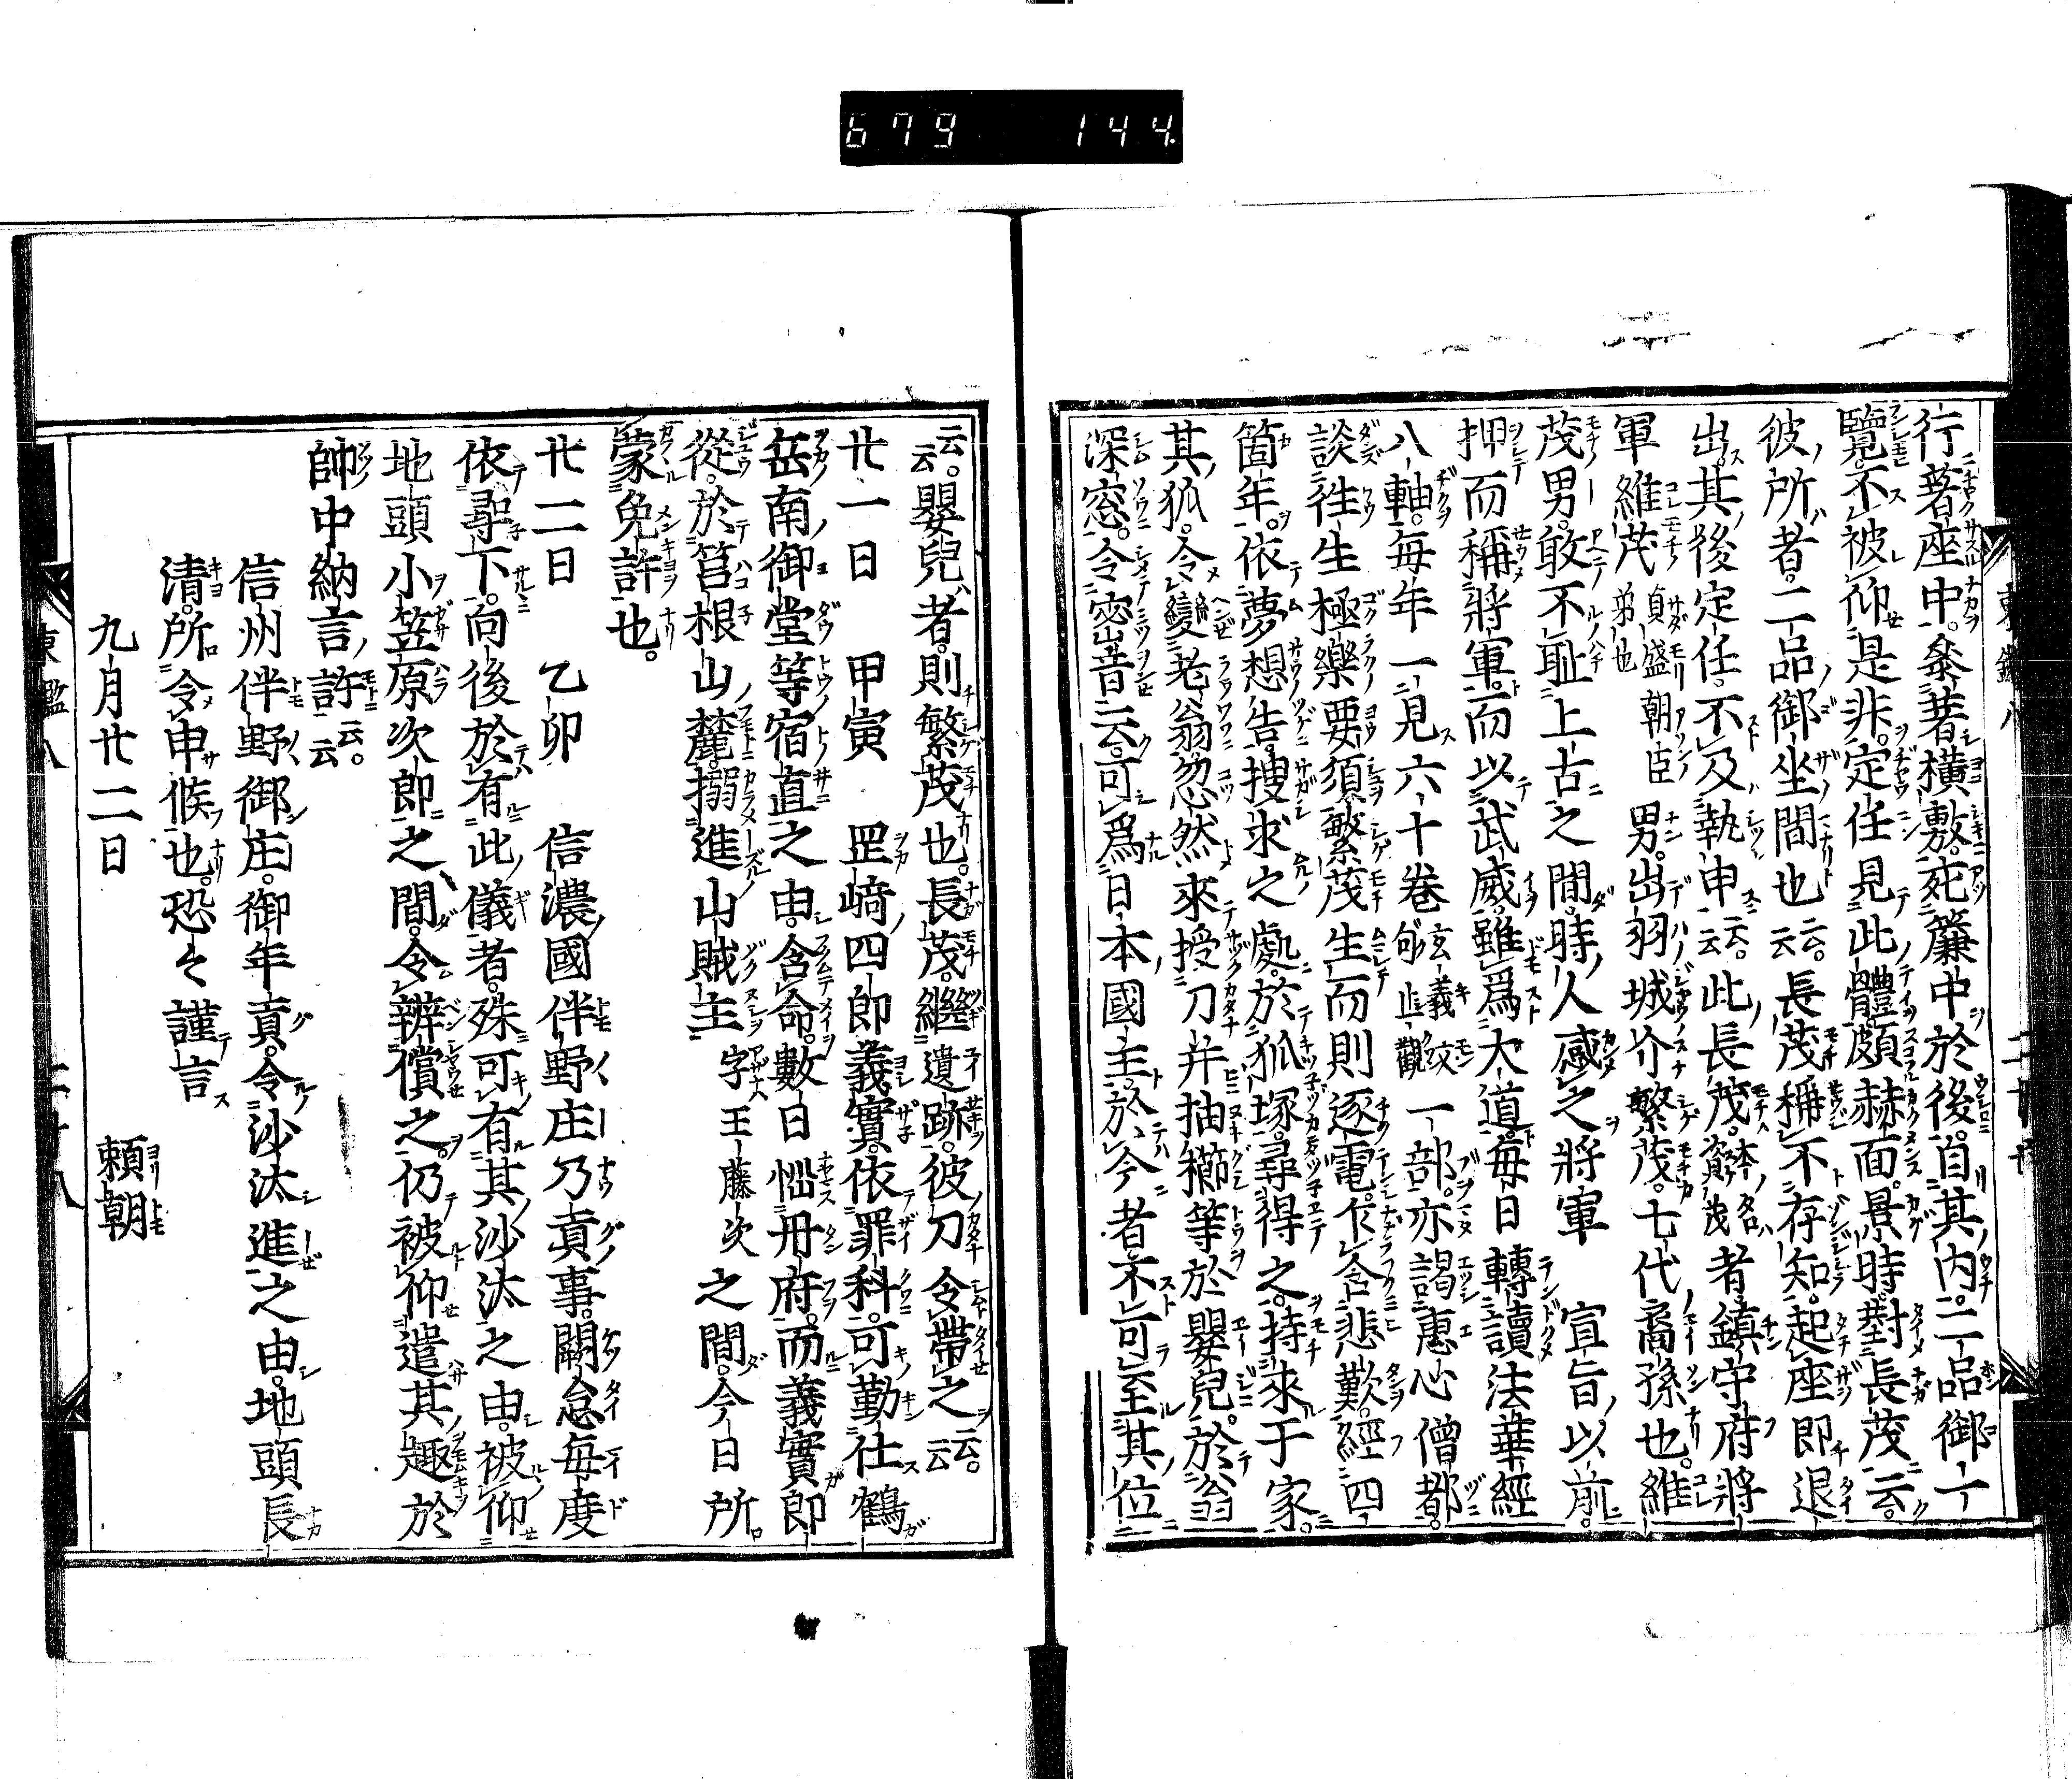 679 144
行著座中。參著横敷。宛簾中於後。自其内。二品御一
覽。不被仰是非。定任見此體。頗赫面。景時對長茂云。
彼所者。二品御坐間也云云。長茂稱不存知。起座即退
出。其後定任。不及執申云云。此長茂。本名資茂者鎮守府將
軍維茂貞盛朝臣弟也男。出羽城介繁茂。七代裔孫也。維
茂男。敢不耻上古之間。時人感之將軍 宣旨以前。
押而稱將軍。而以武威。雖爲大道。毎日轉讀法華經
八軸。毎年一見六十卷玄義文句止觀一部。亦謁惠心僧都。
談往生極樂要須繁茂生而則逐電。乍含悲歎。經四
箇年。依夢想告。搜求之處。於狐塚。尋得之。持來于家。
其狐。令變老翁。忽然來授刀并抽櫛等於嬰兒。於翁
深窓。令密音云。可爲日本國主。於今者不可至其位
云云。嬰兒者。則繁茂也。長茂。繼遺跡。彼刀令帶之云云。
廿一日 甲寅 罡﨑四郎義實。依罪科。可勤仕鶴
岳南御堂等宿直之由。含命。數日惱丹府。而義實郎
從。於筥根山麓。搦進山賊主字王藤次之間。今日所
蒙免許也。
廿二日 乙卯 信濃國伴野庄乃貢事。闕怠毎度
依尋下。向後於有此儀者。殊可有其沙汰之由。被仰
地頭小笠原次郎之間。令辨償之。仍被仰遣其趣於
帥中納言許云云。
信州伴野御庄。御年貢。令沙汰進之由。地頭長
清。所令申候也。恐々謹言
九月廿二日 頼朝
東鑑八